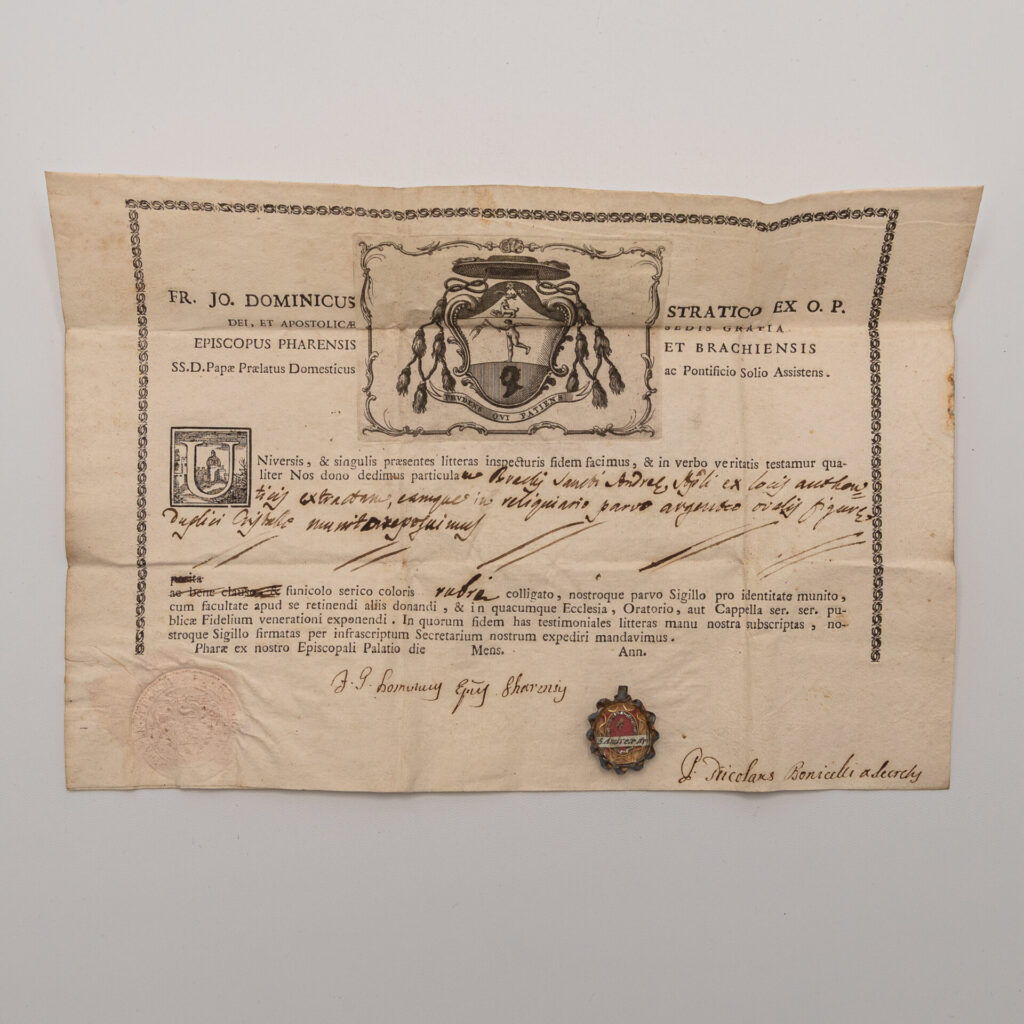 FR. JO. DOMINICUS STRATICO EX O. P.
DEI, ET APOSTOLICÆ SEDIS GRATIA
EPISCOPUS PHARENSIS ET BRACHIENSIS
SS.D.Papæ Prælatus Domesticus ac Pontificio Solio Assistens.
PRUDENS QUI PATIENS
UNiversis, & singulis præsentes litteras inspecturis fidem facimus, & in verbo veritatis testamur qua-
liter Nos dono dedimus particulam Brachij Sancti Andreę Apłi ex locis authen=
ticis extractam, eamque in reliquiario parvo argenteo ovalis figurę
duplici Cristallo munito reposuimus
posita
ac bene clauso, & funicolo serico coloris rubri colligato, nostroque parvo Sigillo pro identitate munito,
cum facultate apud se retinendi aliis donandi, & in quacumque Ecclesia, Oratorio, aut Cappella ser. ser. pu-
blicæ Fidelium venerationi exponendi. In quorum fidem has testimoniales litteras manu nostra subscriptas, no-
stroque Sigillo firmatas per infrascriptum Secretarium nostrum expediri mandavimus.
Pharæ ex nostro Episcopali Palatio die Mens. Ann.
Dominicus Epũs Pharensis
S. Andreæ Ap
P. Nicolaus Bonicelli a secretis